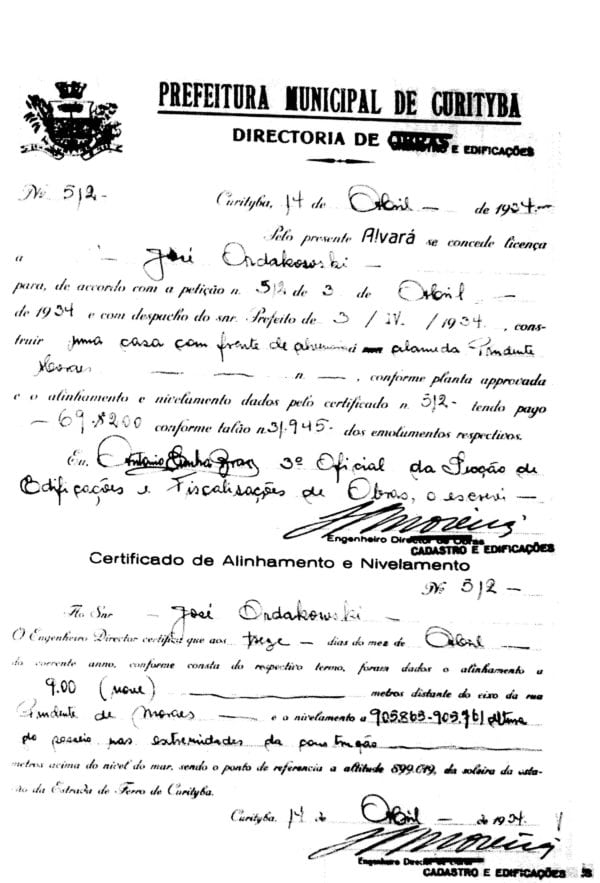 PREFEITURA MUNICIPAL DE CURITYBA
DIRECTORIA DE OBRAS
CADASTRO E EDIFICAÇÕES
Nº 512-
Curityba, 14 de Abril - de 1934
Pelo presente Alvará se concede licença
a José Ordakowski -
para, de accordo com a petição n. 512 de 3 de Abril -
de 1934 e com despacho do snr. Prefeito de 3 / IV / 1934, cons-
truir uma casa com frente de alvenaria alameda Prudente
Moraes — — n. —, conforme planta approvada
e o alinhamento e nivelamento dados pelo certificado n. 512- tendo pago
— 69.$200 conforme talão n. 31.945- dos emolumentos respectivos.
Eu, Antonio 3º Oficial da Secção de
Edificações e Fiscalisações de Obras, o escrevi —
Engenheiro Director de Obras
CADASTRO E EDIFICAÇÕES
Certificado de Alinhamento e Nivelamento
Nº 512 -
Ao Snr - José Ordakowski -
O Engenheiro Director certifica que aos treze - dias do mez de Abril -
do corrente anno, conforme consta do respectivo termo, foram dados o alinhamento a
9.00 (nove) metros distante do eixo da rua
Prudente de Moraes — e o nivelamento a 905.863-905.761 altura
do passeio nas extremidades da construção
metros acima do nivel do mar, sendo o ponto de referencia a altitude 899.019, da soleira da esta-
ção da Estrada de Ferro de Curityba.
Curityba, 14 de Abril - de 1934
Engenheiro Director de Obras
CADASTRO E EDIFICAÇÕES